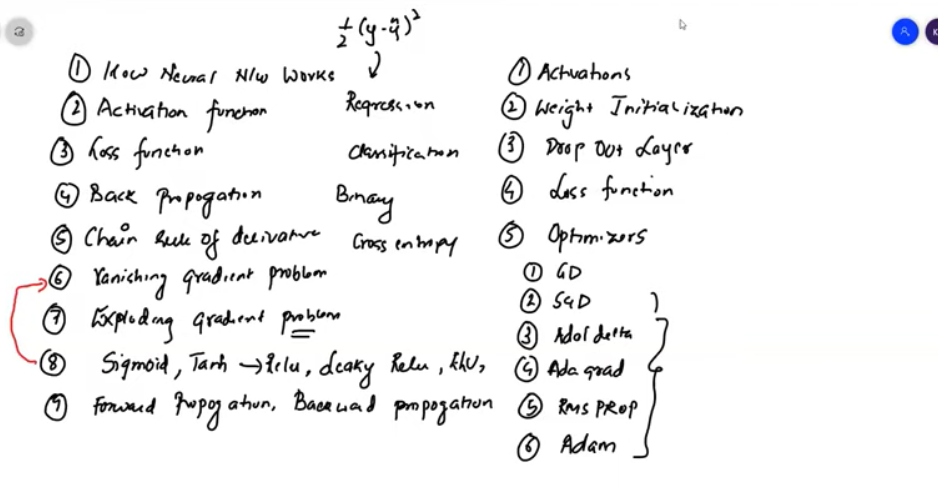 1/2 (y - ŷ)²
① How Neural N/w Works
② Activation function
③ Loss function
④ Back Propogation
⑤ Chain Rule of derivative
⑥ Vanishing gradient problem
⑦ Exploding gradient problem
⑧ Sigmoid, Tanh → Relu, Leaky Relu, ELU,
⑨ Forward Propogation, Backward propogation
Regression
Classification
Binary
Cross entropy
① Activations
② Weight Initialization
③ Drop Out Layer
④ Loss function
⑤ Optimizors
① GD
② SGD
③ Adol delta
④ Ada grad
⑤ RMS PROP
⑥ Adam
K